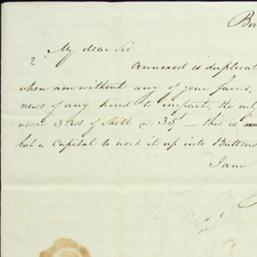 My dear Sir
Annexed is duplicat
when am without any of your favrs,
news of any kind to impart, the onl
about 3 Cwt of Shell @ 35/ — this is
but a Capital to work it up into Buttons
I am